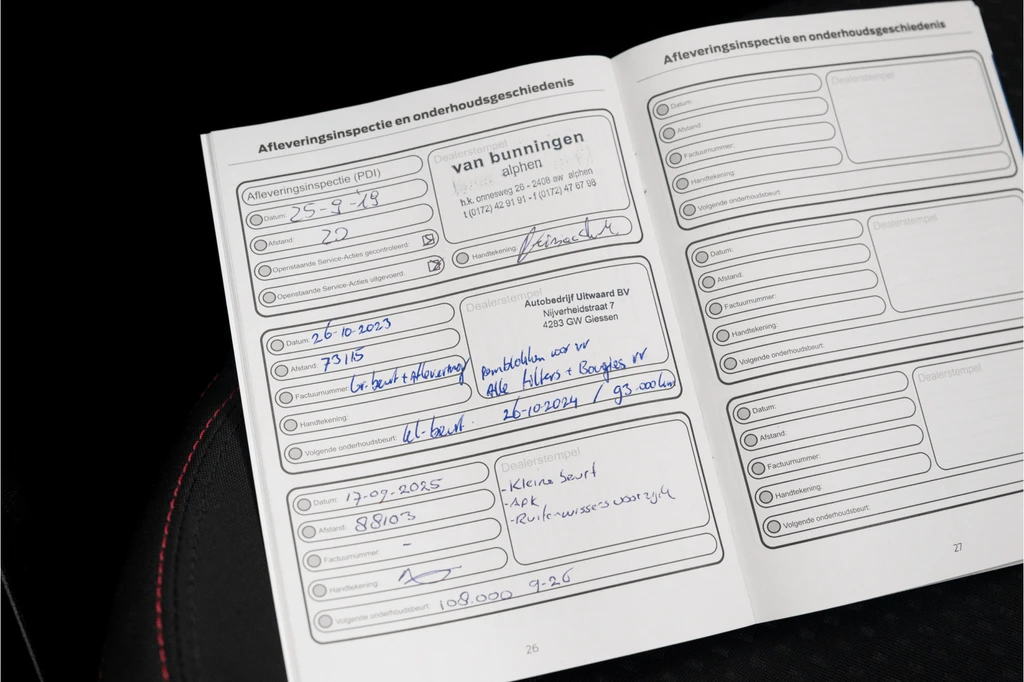 Afleveringsinspectie en onderhoudsgeschiedenis
Afleveringsinspectie (PDI)
Datum: 25-9-19
Afstand: 20
Openstaande Service-Acties gecontroleerd:
Openstaande Service-Acties uitgevoerd:
Dealerstempel
van bunningen
alphen
h.k. onnesweg 26 - 2408 aw alphen
t (0172) 42 91 91 - f (0172) 47 67 98
Handtekening:
Datum: 26-10-2023
Afstand: 73115
Factuurnummer: Gr. beurt + Aflevering
Handtekening:
Volgende onderhoudsbeurt: kl-beurt. 26-10-2024 / 93.000km
Dealerstempel
Autobedrijf Uitwaard BV
Nijverheidstraat 7
4283 GW Giessen
Remblokken voor vv
Alle filters + Bougies vv
Datum: 17-09-2025
Afstand: 88103
Factuurnummer: -
Handtekening:
Volgende onderhoudsbeurt: 108.000 9-26
Dealerstempel
- Kleine beurt
- APK
- Ruitenwissers voorzijde
26
Afleveringsinspectie en onderhoudsgeschiedenis
Datum:
Afstand:
Factuurnummer:
Handtekening:
Volgende onderhoudsbeurt:
Dealerstempel
Datum:
Afstand:
Factuurnummer:
Handtekening:
Volgende onderhoudsbeurt:
Dealerstempel
Datum:
Afstand:
Factuurnummer:
Handtekening:
Volgende onderhoudsbeurt:
Dealerstempel
27